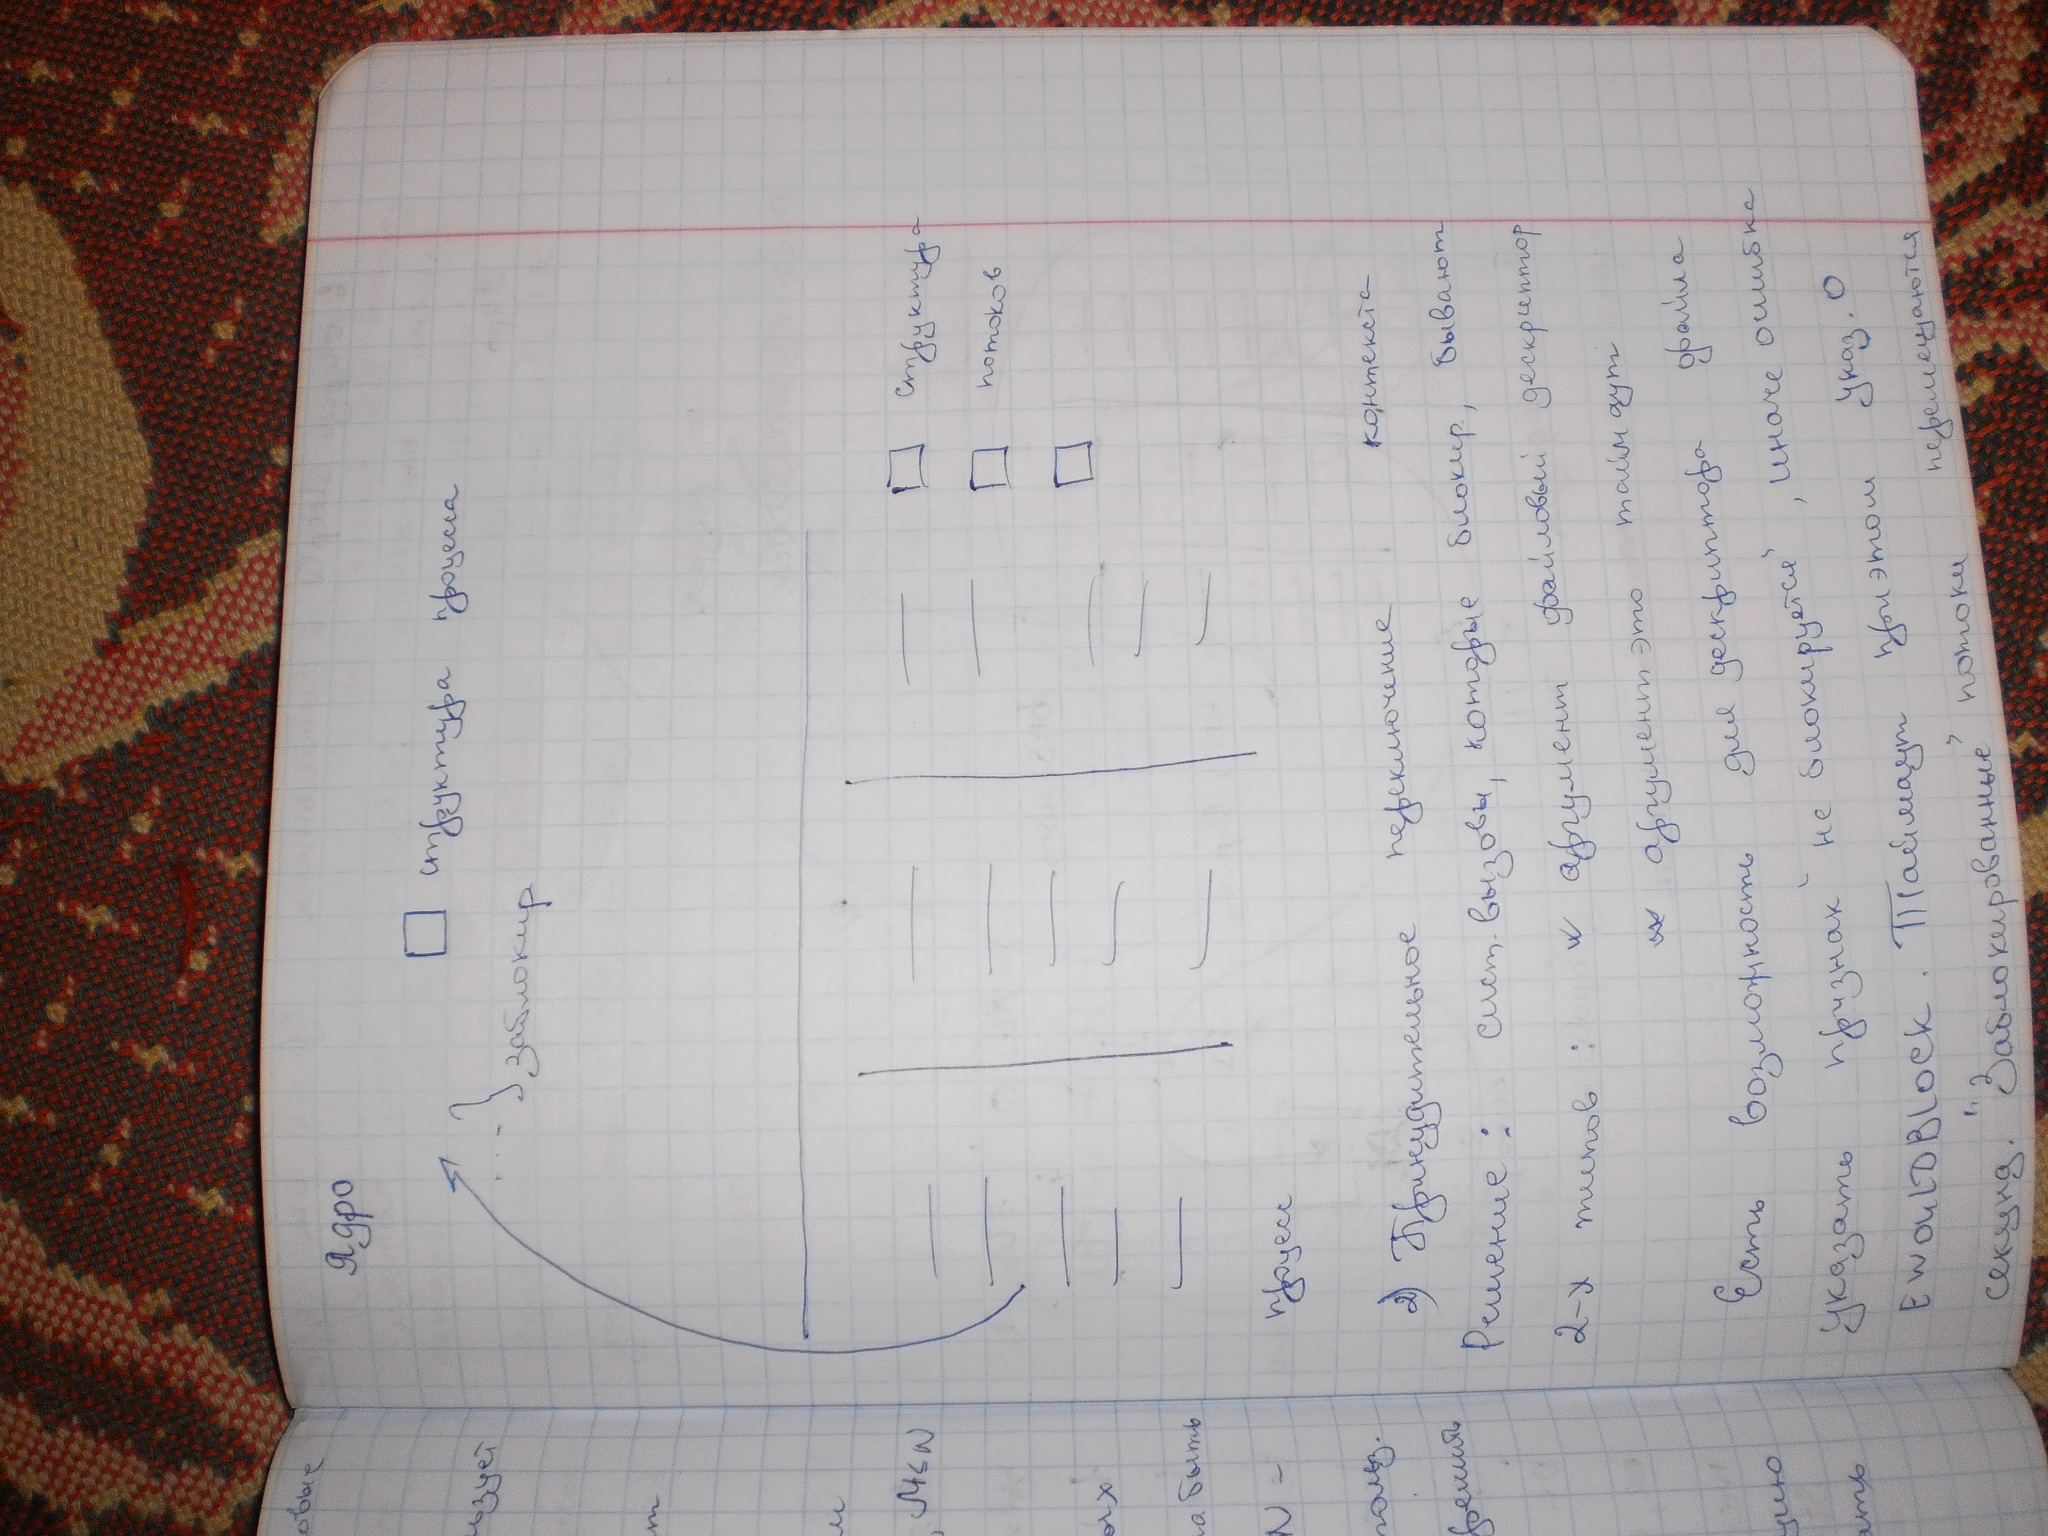 Ядро
структура процесса
... } заблокир
структура
потоков
процесс
2) Принудительное переключение контекста
Решение: сист. вызовы, которые блокир, бывают
2-х типов: * аргумент файловый дескриптор
* аргумент это таймаут
Есть возможность для дескриптора файла
указать признак "не блокируется", иначе ошибка
EWOULDBLOCK. Таймаут при этом указ. 0
секунд. "Заблокированные" потоки перемещаются
овые
ьзует
т
м
, M≤N
ых
на быть
N -
польз.
ать